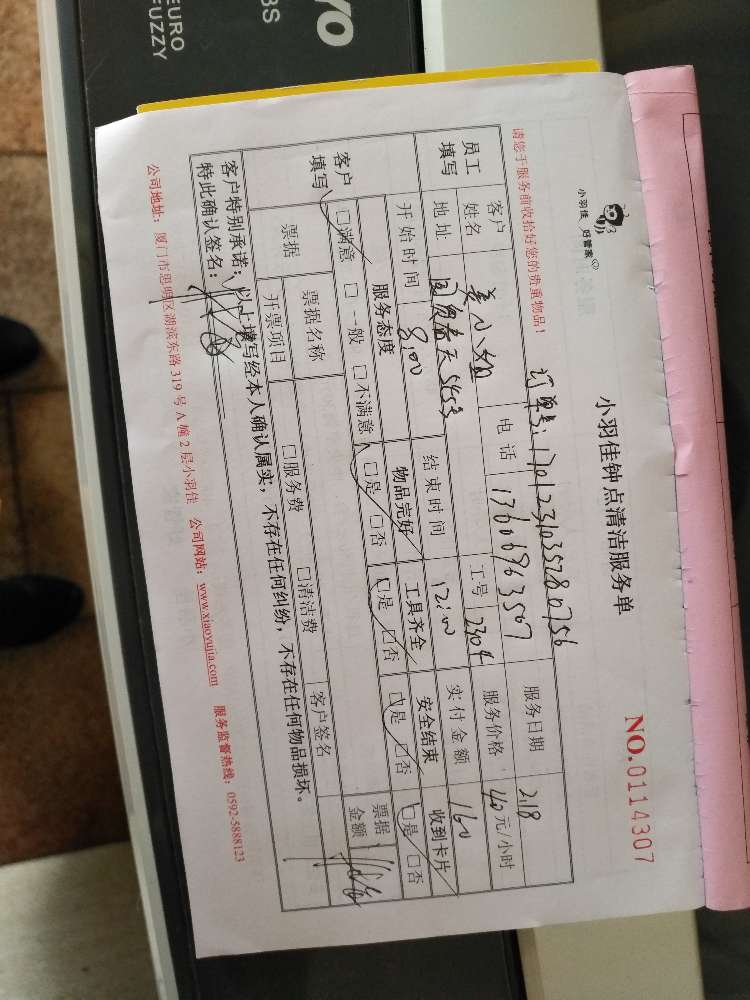 YO
BS
EURO
FUZZY
小羽佳 好管家
小羽佳钟点清洁服务单
NO.0114307
请您于服务前收拾好您的贵重物品！
订单号:17012310357810756
员工填写
客户姓名
姜小姐
电话
13606963507
服务日期
2.18
地址
工号
2304
服务价格
40元/小时
开始时间
8:00
结束时间
12:00
实付金额
160
客户填写
服务态度
物品完好
工具齐全
安全结束
收到卡片
□满意 □一般 □不满意
□是 □否
□是 □否
□是 □否
□是 □否
票据
票据名称
客户签名
票据金额
开票项目
□服务费 □清洁费
客户特别承诺：以上填写经本人确认属实，不存在任何纠纷，不存在任何物品损坏。
特此确认签名：
公司地址：厦门市思明区湖滨东路319号A幢2层小羽佳 公司网站：www.xiaoyujia.com 服务监督热线：0592-5888123